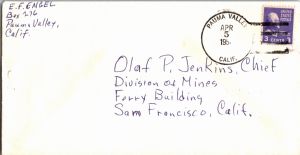 E.F. ENGEL
Box 216
Pauma Valley,
Calif.
PAUMA VALLEY
APR
5
CALIF.
3 CENTS 3
Olaf P. Jenkins, Chief
Division of Mines
Ferry Building
San Francisco, Calif.